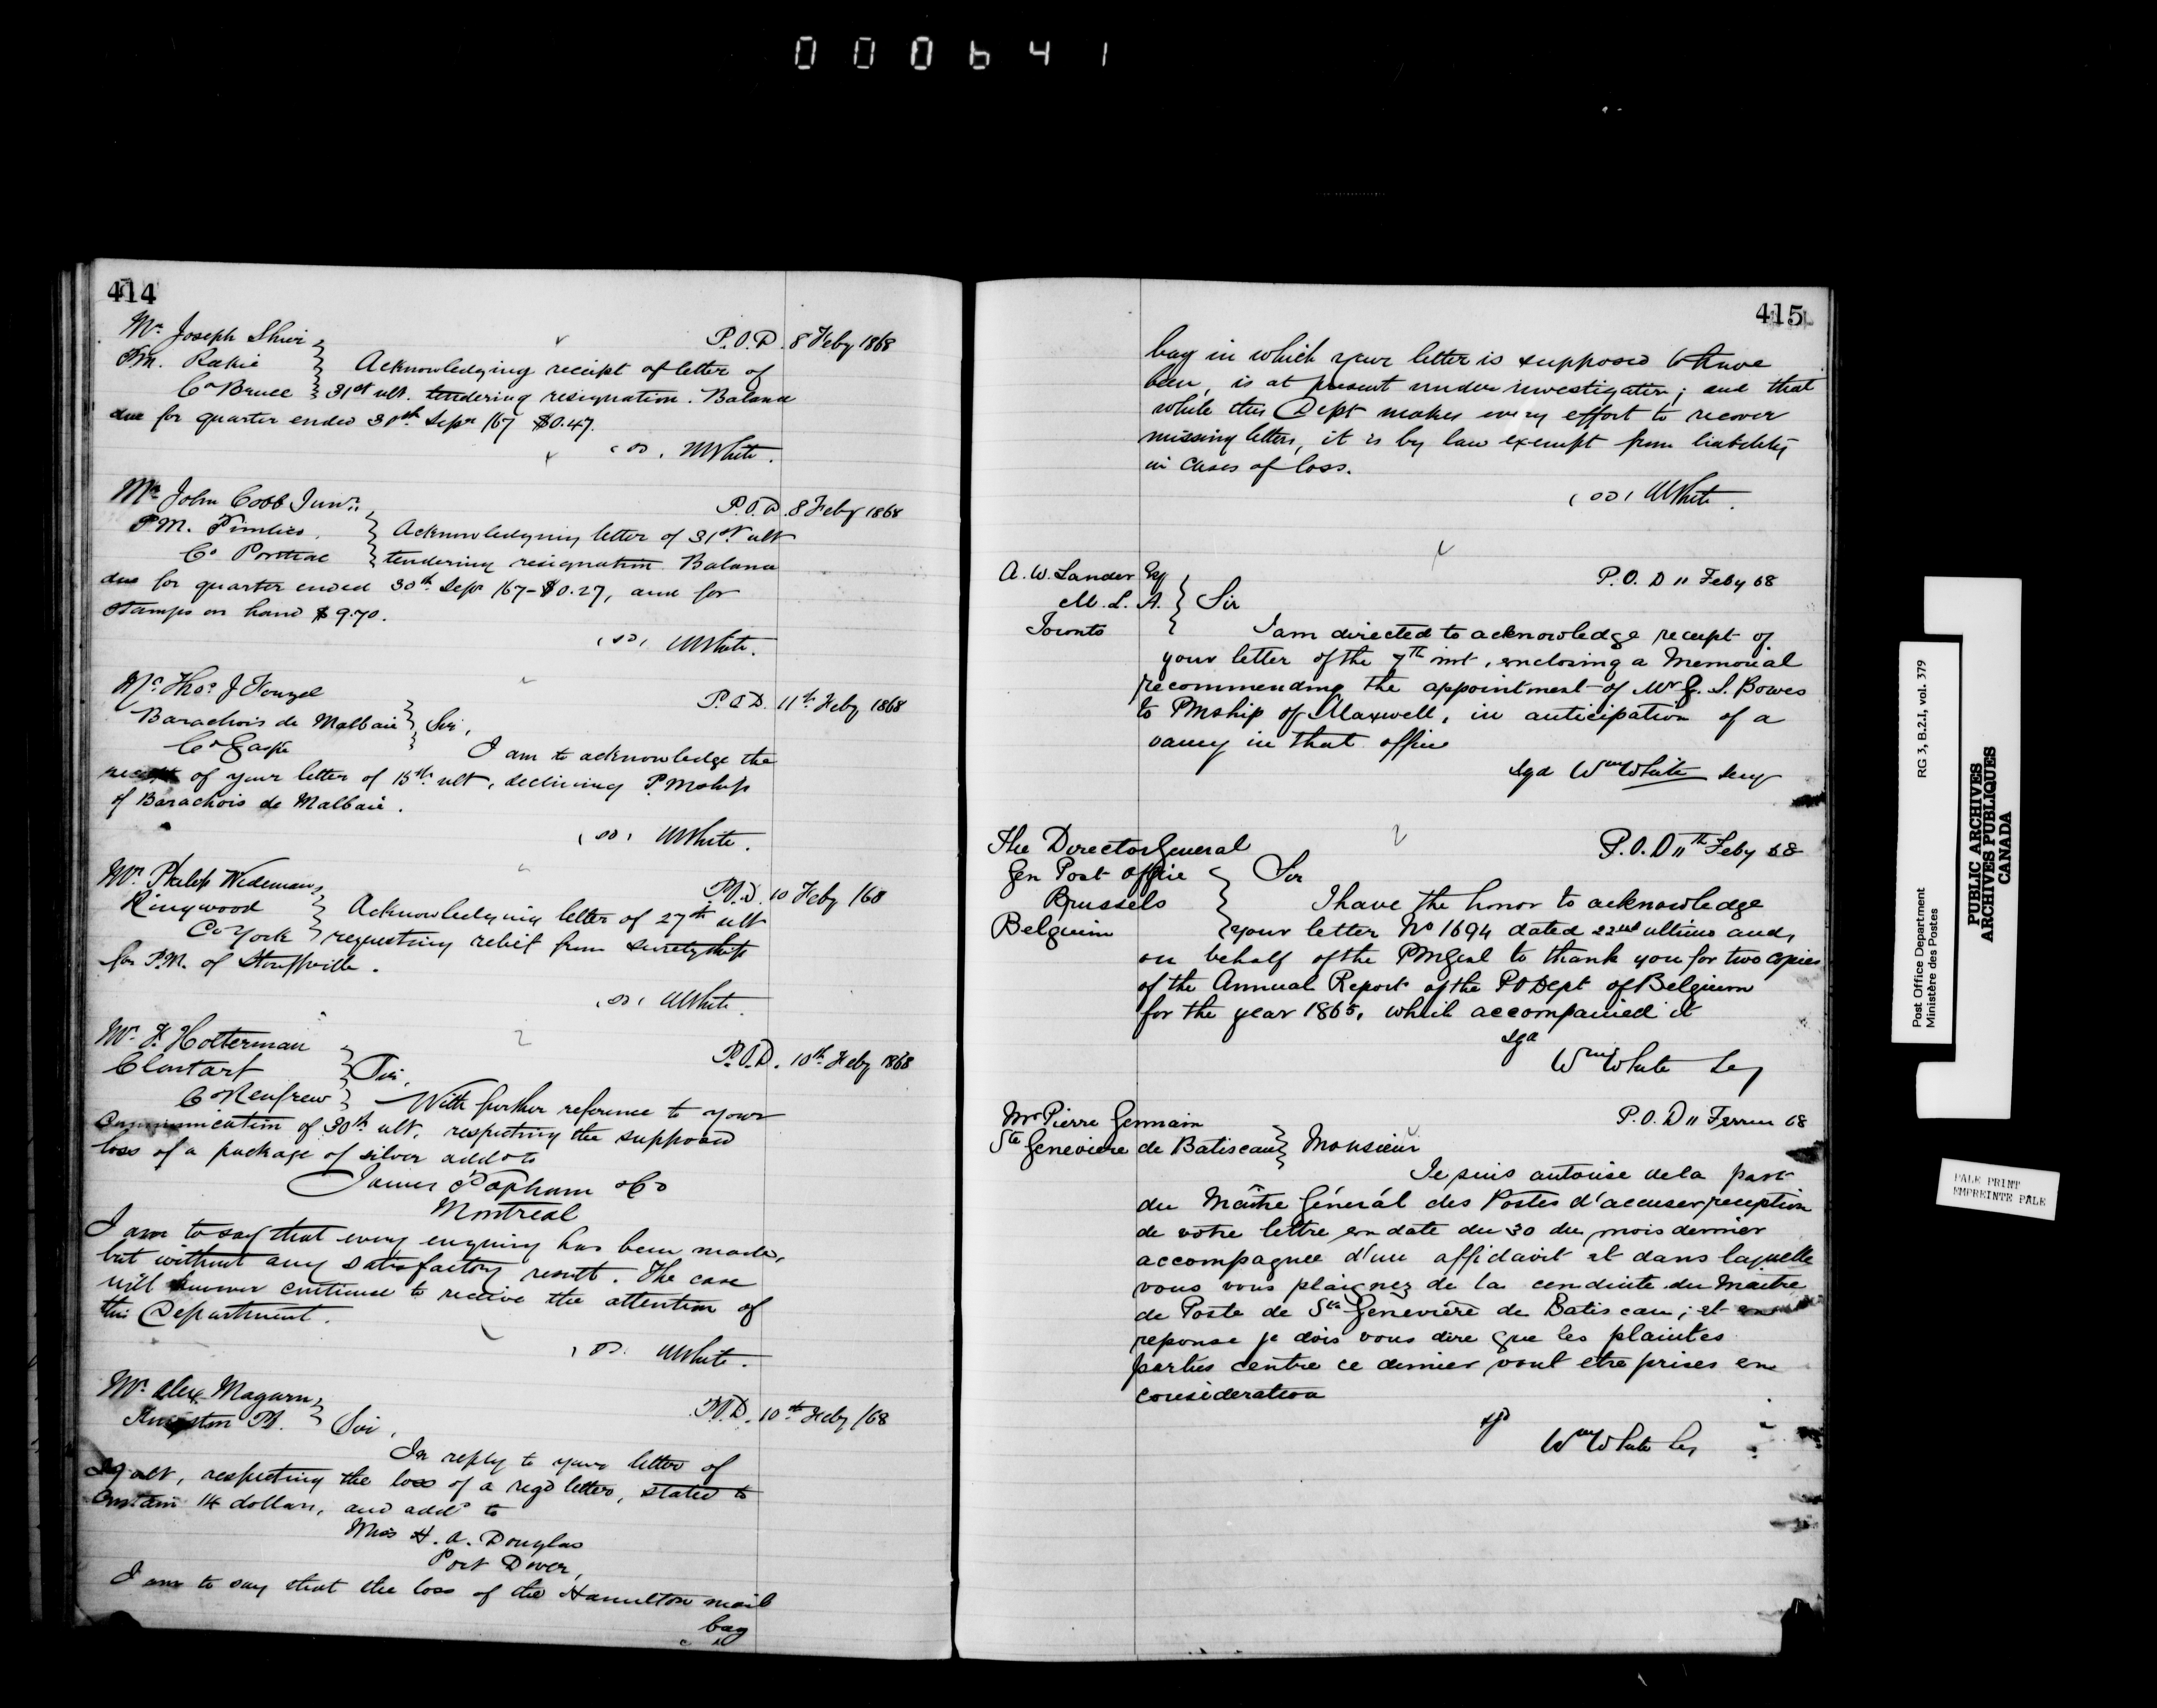 000641
414
Mr. Joseph Shier
P.O.D. 8 Feby 1868
PM.
Acknowledging receipt of letter of
Co Bruce
31st ult. tendering resignation. Balance
due for quarter ended 30th Sepr /67 $0.47.
(sd) WWhite.
Mr. John Cobb Junr.
P.O.D. 8 Feby 1868
P.M.
Acknowledging letter of 31st ult
Co Pontiac
tendering resignation. Balance
due for quarter ended 30th Sepr /67 - $0.27, and for
stamps on hand $9.70.
(sd) WWhite.
Mr. Thos. J
P.O.D. 11th Feby 1868
Barachois de Malbaie
Sir,
Co Gaspé
I am to acknowledge the
receipt of your letter of 15th ult, declining P.Mship
of Barachois de Malbaie.
(sd) WWhite.
Mr. Philip Wideman,
P.O.D. 10 Feby /68
Ringwood
Acknowledging letter of 27th ult
Co York
requesting relief from suretyship
for P.M. of Stouffville.
(sd) WWhite.
Mr. F. Holterman
P.O.D. 10th Feby 1868
Clontarf
Sir,
Co Renfrew
With further reference to your
Communication of 30th ult. respecting the supposed
loss of a package of silver addd to
James Popham & Co
Montreal
I am to say that every enquiry has been made,
but without any satisfactory result. The case
will however continue to receive the attention of
this Department.
(sd) WWhite.
Mr. Alex. Magurn,
P.O.D. 10th Feby /68
Kingston
Sir,
In reply to your letter of
ult, respecting the loss of a regd letter, stated to
contain 14 dollars, and addd to
Miss H. A. Douglas
Port Dover,
I am to say that the loss of the Hamilton mail
bag
415
bag in which your letter is supposed to have
been, is at present under investigation; and that
while this Dept makes every effort to recover
missing letters, it is by law exempt from liability
in cases of loss.
(sd) WWhite.
A. W. Lander Esq
P.O.D 11 Feby 68
M. L. A.
Sir
Toronto
I am directed to acknowledge receipt of
your letter of the 7th inst, enclosing a Memorial
recommending the appointment of Mr G. S. Bowes
to PMship of Maxwell, in anticipation of a
vancy in that office
sgd Wm White Secy
The Director General
P.O.D 11th Feby 68
Gen Post Office
Sir
Brussels
I have the honor to acknowledge
Belgium
your letter No 1694 dated 22nd ultimo and,
on behalf of the PMGenl to thank you for two copies
of the Annual Report of the PO Dept of Belgium
for the year 1865, which accompanied it
sgd
Wm White Secy
Mr Pierre Germain
P.O.D 11 68
Ste Genevieve de Batiscan
Monsieur
Je suis autorise de la part
du Maître Général des Postes d'accuser reception
de votre lettre en date du 30 du mois dernier
accompagnee d'un affidavit et dans laquelle
vous vous plaignez de la conduite du Maitre
de Poste de Ste Genevière de Batiscan; et en
reponse je dois vous dire que les plaintes
portées contre ce dernier vont etre prises en
consideration
sgd
Wm White Secy
Post Office Department
RG 3, B.2.I, vol. 379
Ministère des Postes
PUBLIC ARCHIVES
ARCHIVES PUBLIQUES
CANADA
PALE PRINT
EMPREINTE PALE